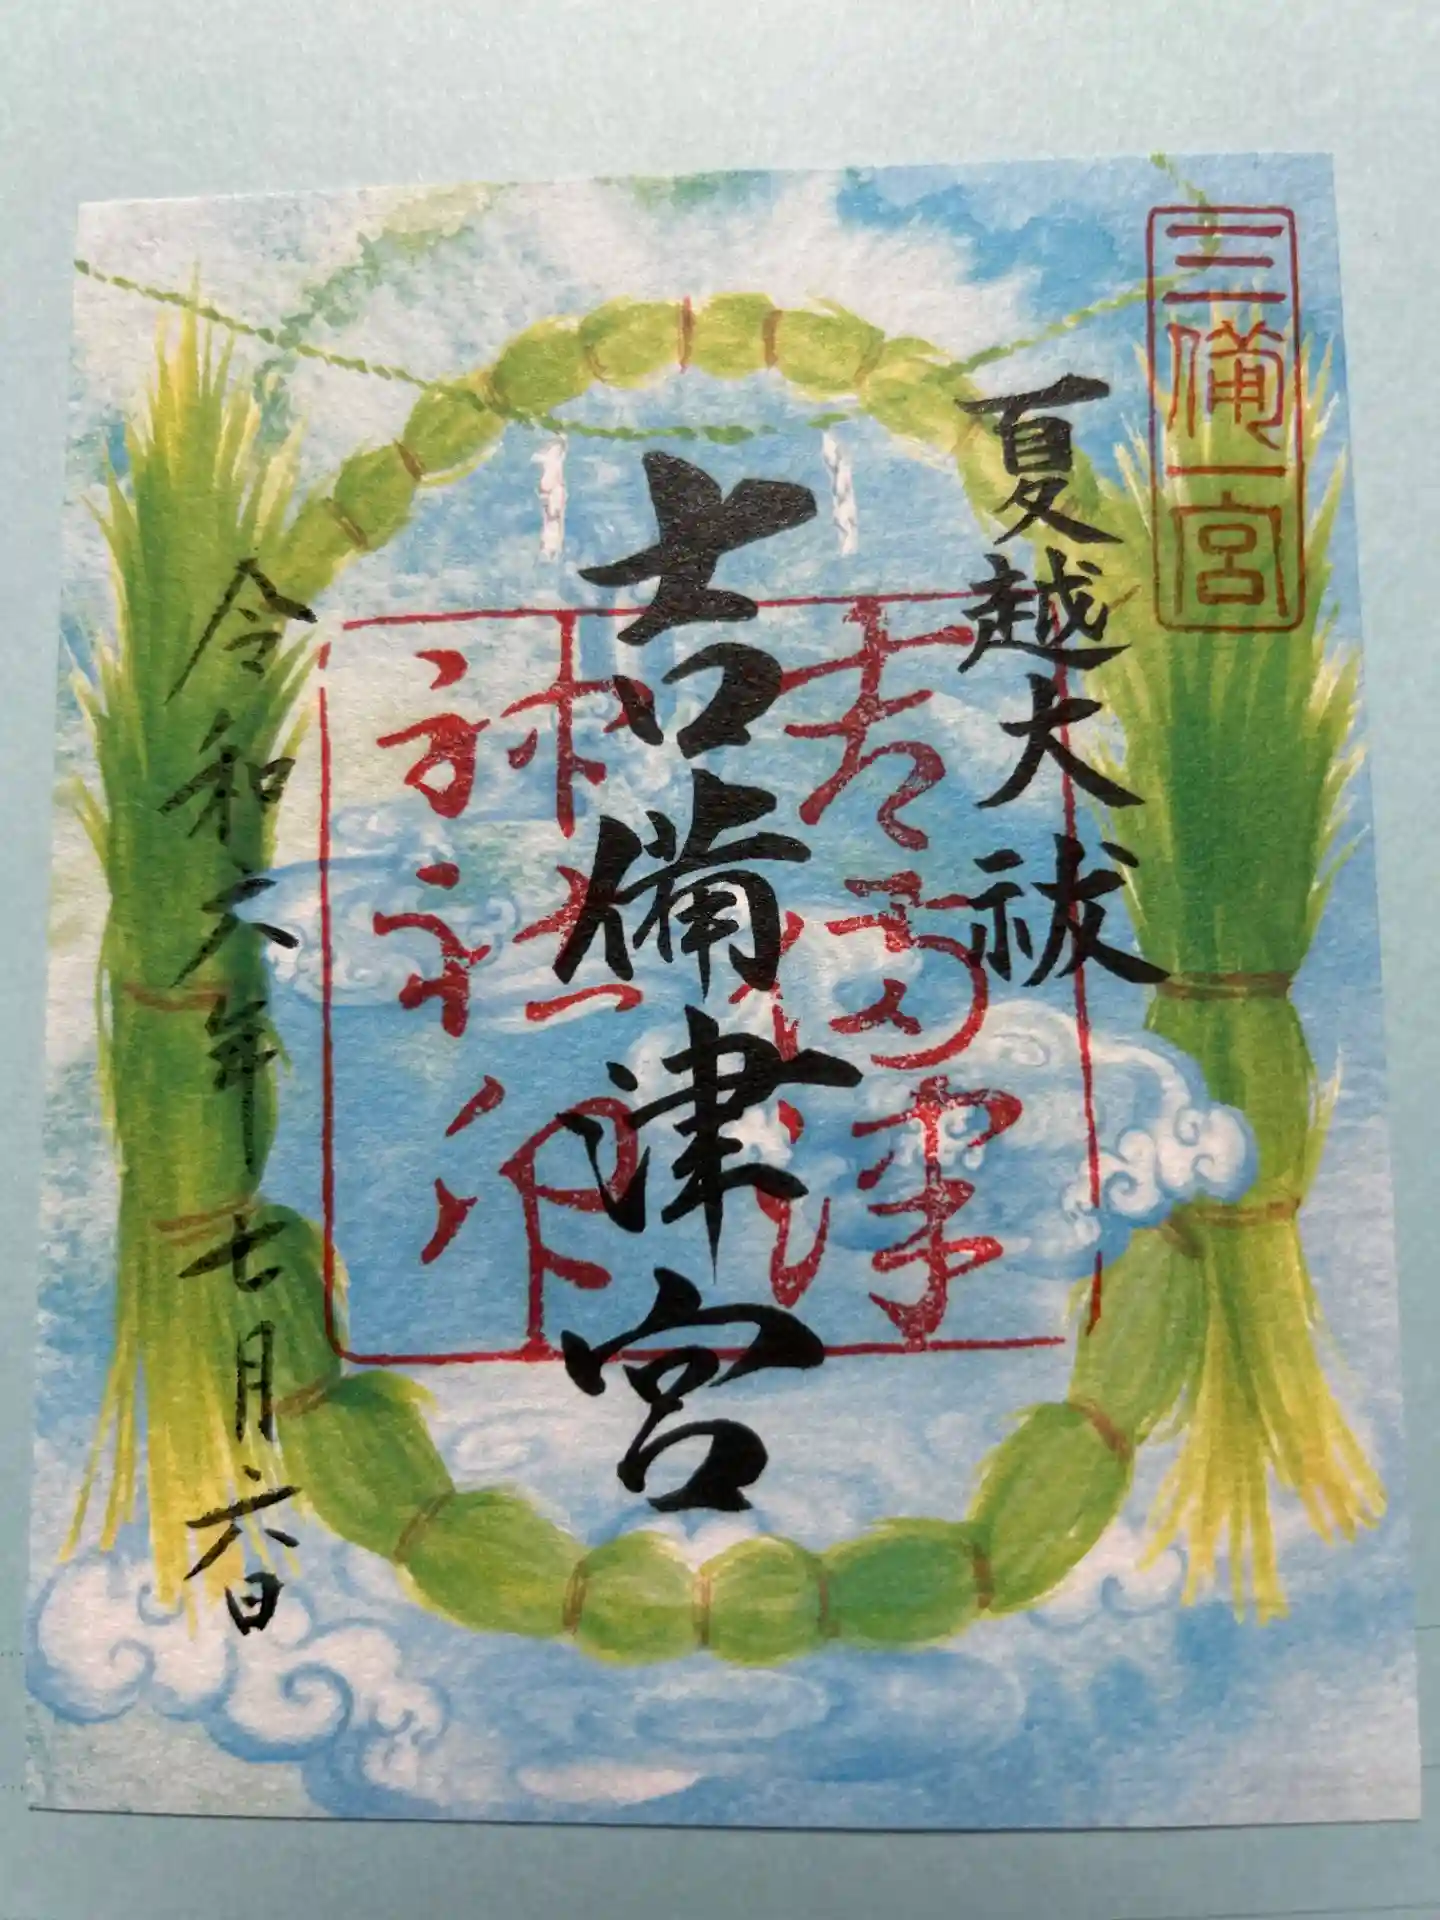 三備一宮
夏越大祓
吉備津宮
令和六年七月六日